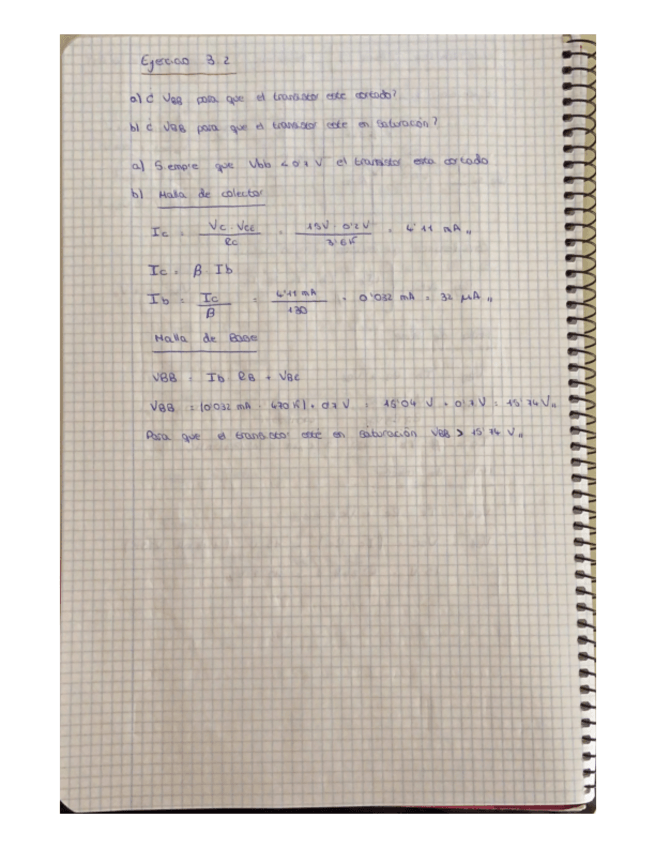 Ejercicio 3.2
a) ¿ VBB para que el transistor este cortado?
b) ¿ VBB para que el transistor este en saturación?
a) Siempre que Vbb < 0'7 V el transistor esta cortado
b) Malla de colector
Ic = Vc - VCE / RC = 15V - 0'2V / 3'6K = 4'11 mA "
Ic = β · Ib
Ib = Ic / β = 4'11 mA / 130 = 0'032 mA = 32 μA "
Malla de Base
VBB = Ib · RB + VBE
VBB = (0'032 mA · 470 K) + 0'7 V = 15'04 V + 0'7 V = 15'74 V "
Para que el transistor esté en saturación VBB > 15'74 V "